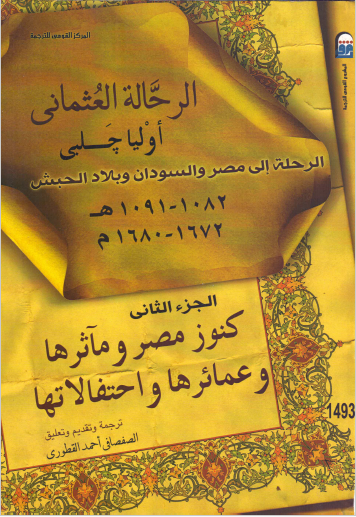 المركز القومى للترجمة
الرحَّالة العُثمانى
أوْليا چَـلبى
الرحلة إلى مصر والسودان وبلاد الحبش
١٠٨٢-١٠٩١ هـ
١٦٧٢-١٦٨٠ م
الجزء الثانى
كنوز مصر ومآثرها
وعمائرها واحتفالاتها
1493
ترجمة وتقديم وتعليق
الصفصافى أحمد القطورى